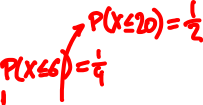 P(X≤20)=1/2
P(X≤6)=1/4